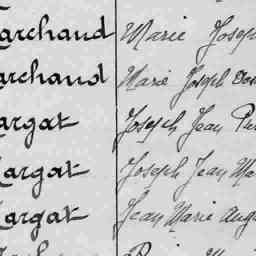 archand Marie Joseph
archand Marie Joseph
argat Joseph Jean
argat Joseph Jean
argat Jean Marie